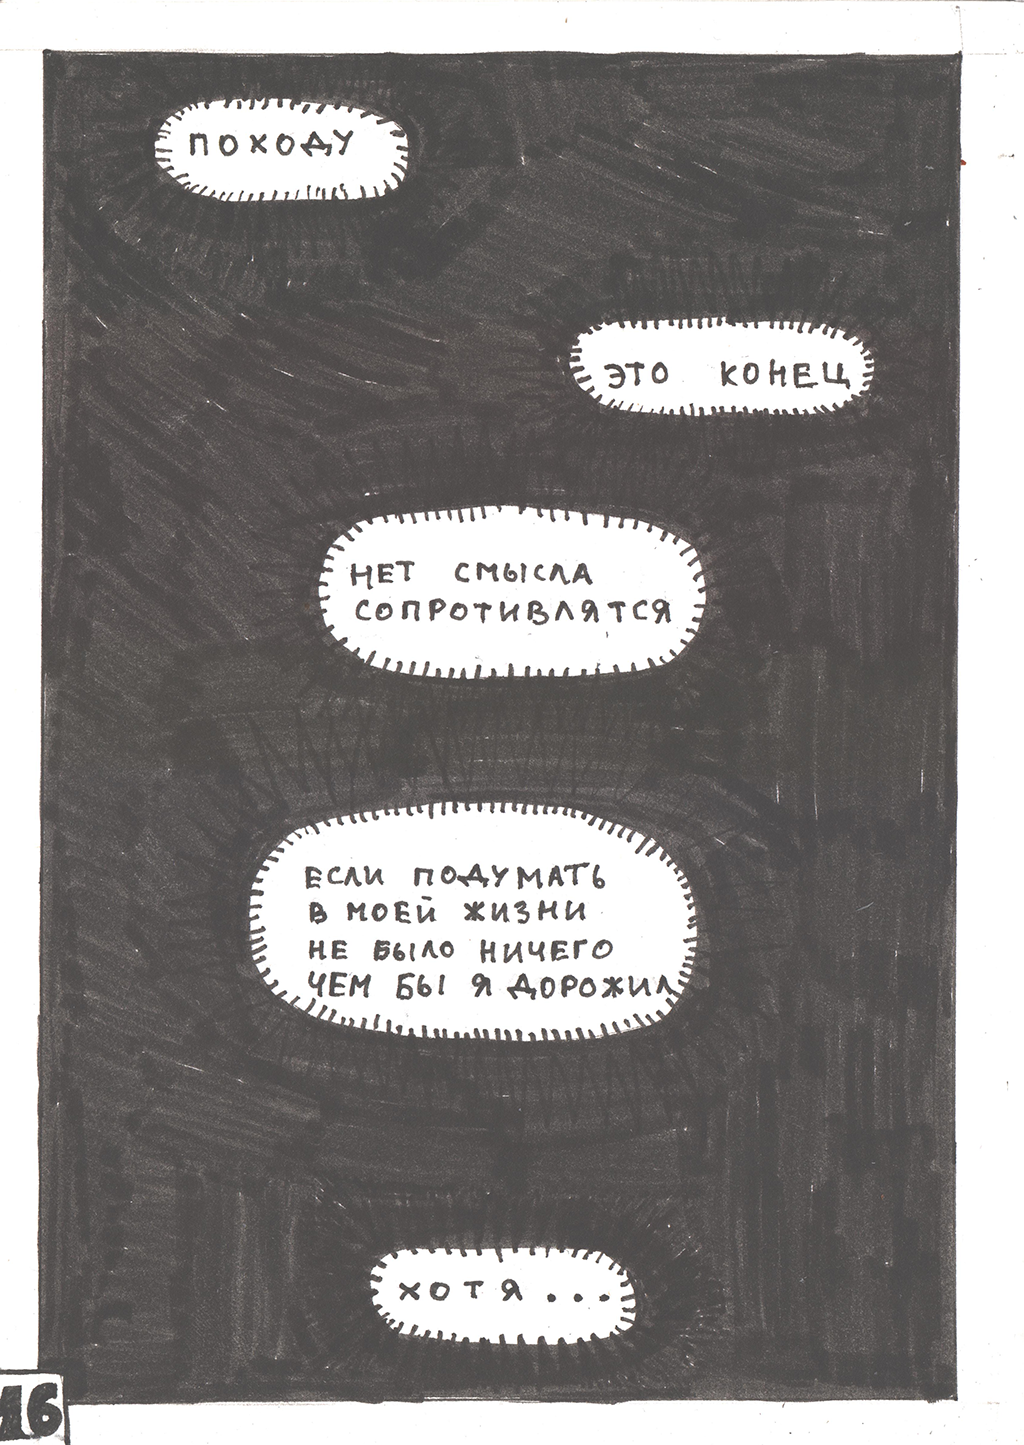 ПОХОДУ
ЭТО КОНЕЦ
НЕТ СМЫСЛА
СОПРОТИВЛЯТСЯ
ЕСЛИ ПОДУМАТЬ
В МОЕЙ ЖИЗНИ
НЕ БЫЛО НИЧЕГО
ЧЕМ БЫ Я ДОРОЖИЛ
ХОТЯ...
16